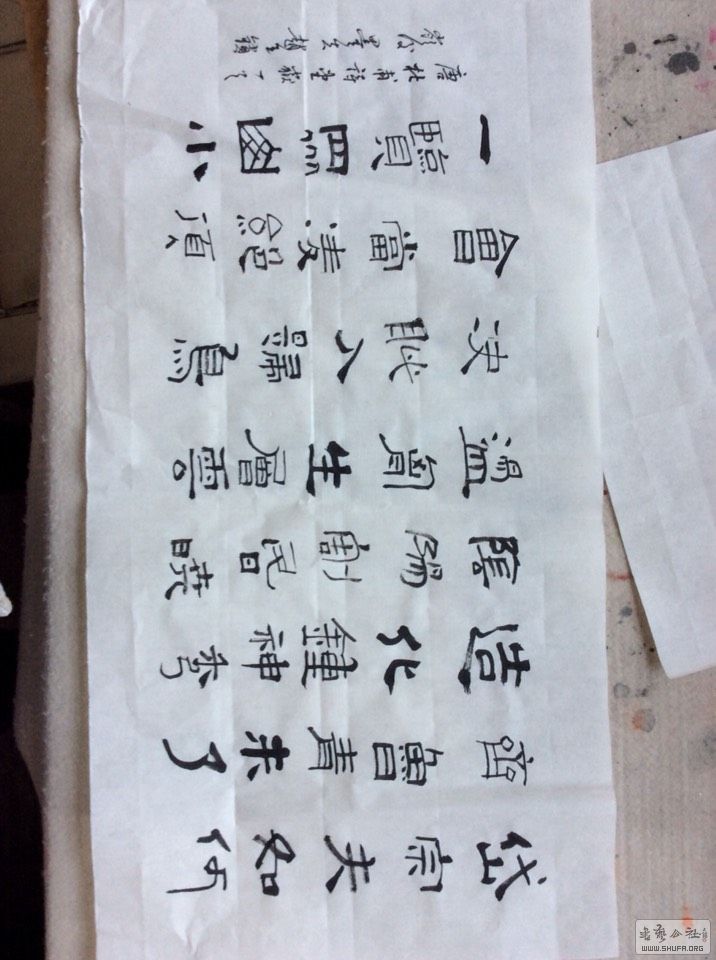 岱宗夫如何
齊魯青未了
造化鐘神秀
陰陽割昏曉
盪胸生層雲
決眥入歸鳥
會當凌絕頂
一覽眾山小
唐杜甫詩望嶽
書藝公社
WWW.SHUFA.ORG